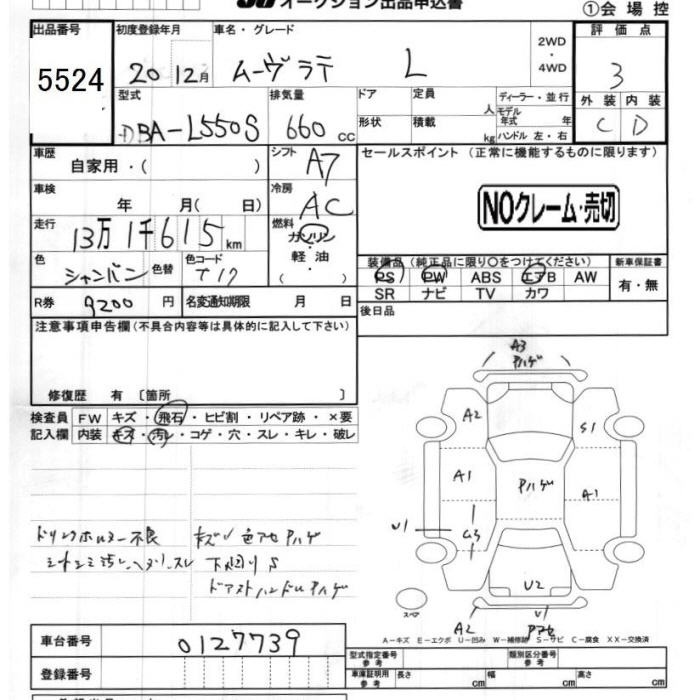 オークション出品申込書
①会場控
出品番号 初度登録年月 車名・グレード 2WD・4WD 評価点
5524 20 12月 ムーヴ ラテ L 3
型式 排気量 ドア 定員 人 ディーラー・並行 外装 内装
DBA-L550S 660cc 形状 積載 kg モデル年式 年 ハンドル 左・右 C D
車歴 自家用・( ) シフト A7 セールスポイント (正常に機能するものに限ります)
車検 年 月( 日) 冷房 AC NOクレーム・売切
走行 13万1千615km 燃料 ガソリン・軽油
色 シャンパン 色替 色コード T17 装備品(純正品に限り○をつけてください) 新車保証書
PS PW ABS エアB AW 有・無
SR ナビ TV カワ
R券 9200円 名変通知期限 月 日 後日品
注意事項申告欄(不具合内容等は具体的に記入して下さい)
修復歴 有〔箇所 〕
検査員 FW キズ・飛石・ヒビ割・リペア跡・×要
記入欄 内装 キズ・汚レ・コゲ・穴・スレ・キレ・破レ
ドリンクホルダー不良 キズ 色アセ ハゲ
汚レ スレ 下回りS
ドアストハンドルハゲ
A3
ハゲ
A2 S1
A1 ハゲ A1
U1
U2
スペア A2 U1
アセ
A-キズ E-エクボ U-凹み W-補修跡 S-サビ C-腐食 XX-交換済
車台番号 0127739
登録番号
型式指定番号 参考 類別区分番号 参考
車庫証明用 参考 長さ cm 幅 cm 高さ cm